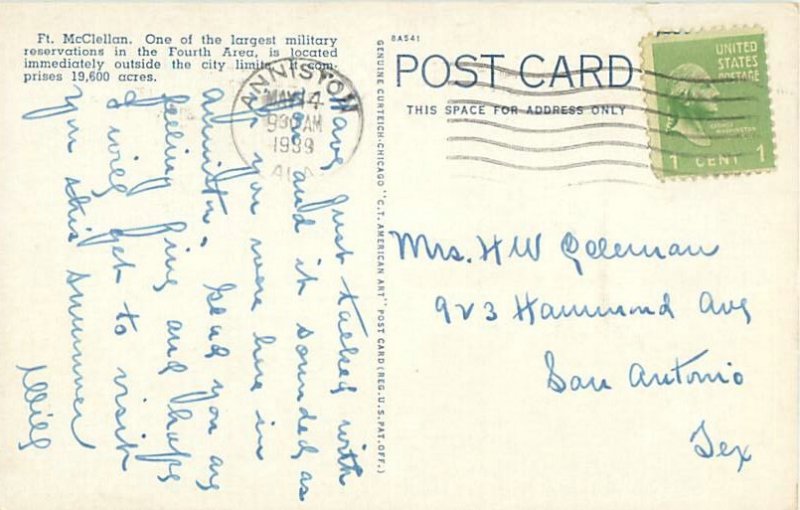 Ft. McClellan. One of the largest military
reservations in the Fourth Area, is located
immediately outside the city limits. It com-
prises 19,600 acres.
8A541
POST CARD
THIS SPACE FOR ADDRESS ONLY
UNITED
STATES
POSTAGE
WASHINGTON
1 CENT 1
ANNISTON
MAY 14
9 30 AM
1939
ALA
GENUINE CURTEICH-CHICAGO "C.T. AMERICAN ART" POST CARD (REG. U.S. PAT. OFF.)
Have just talked with
you and it sounded as
if you were here in
Anniston. Glad you are
feeling fine and hope
I will get to visit
you this summer
Will
Mrs. H W Coleman
923 Hammond Ave
San Antonio
Tex